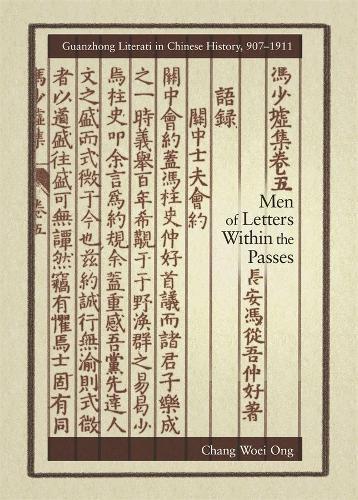 Guanzhong Literati in Chinese History, 907–1911
馮少墟集卷五
語録
長安馮從吾仲好著
關中士夫會約
關中會約蓋馮柱史仲好首議而諸君子樂成
之一時義舉百年希覯于于野渙群之易易少
焉柱史叩余言爲約規余蓋重感吾黨先達人
文之盛而式微于今也茲約誠行無渝則式微
者以還盛往盛可無譚然竊有懼焉士固有同
馮少墟集
卷五
Men
of Letters
Within the
Passes
Chang Woei Ong